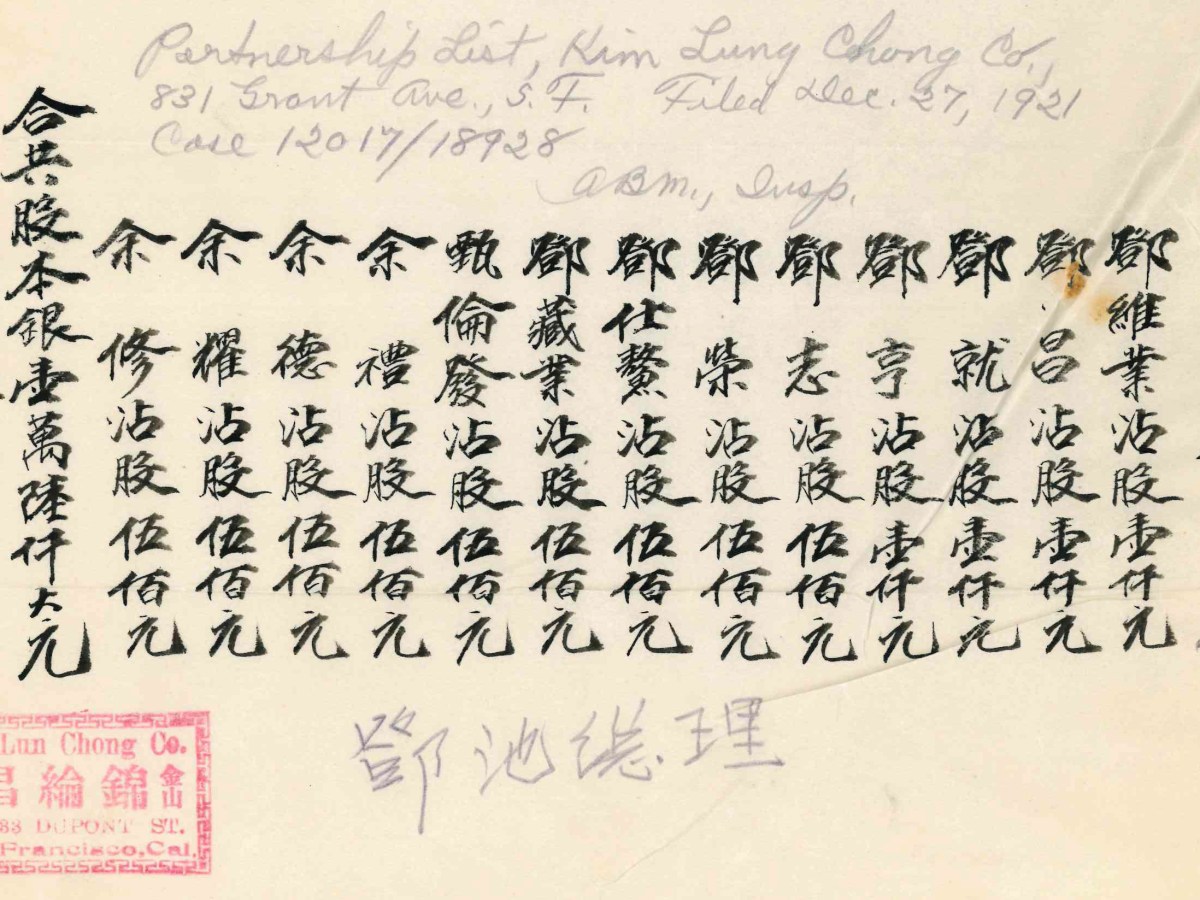 Partnership List, Kim Lung Chong Co.,
831 Grant Ave., S. F. Filed Dec. 27, 1921
Case 12017/18928
ABM., Insp.
鄧維業沾股壹仟元
鄧呂沾股壹仟元
鄧就沾股壹仟元
鄧亨沾股壹仟元
鄧志沾股伍佰元
鄧榮沾股伍佰元
鄧仕鰲沾股伍佰元
鄧藏業沾股伍佰元
甄倫發沾股伍佰元
余禮沾股伍佰元
余德沾股伍佰元
余耀沾股伍佰元
余修沾股伍佰元
合共股本銀壹萬陸仟大元
鄧池總理
Lun Chong Co.
金山
錦綸昌
33 DUPONT ST.
Francisco, Cal.